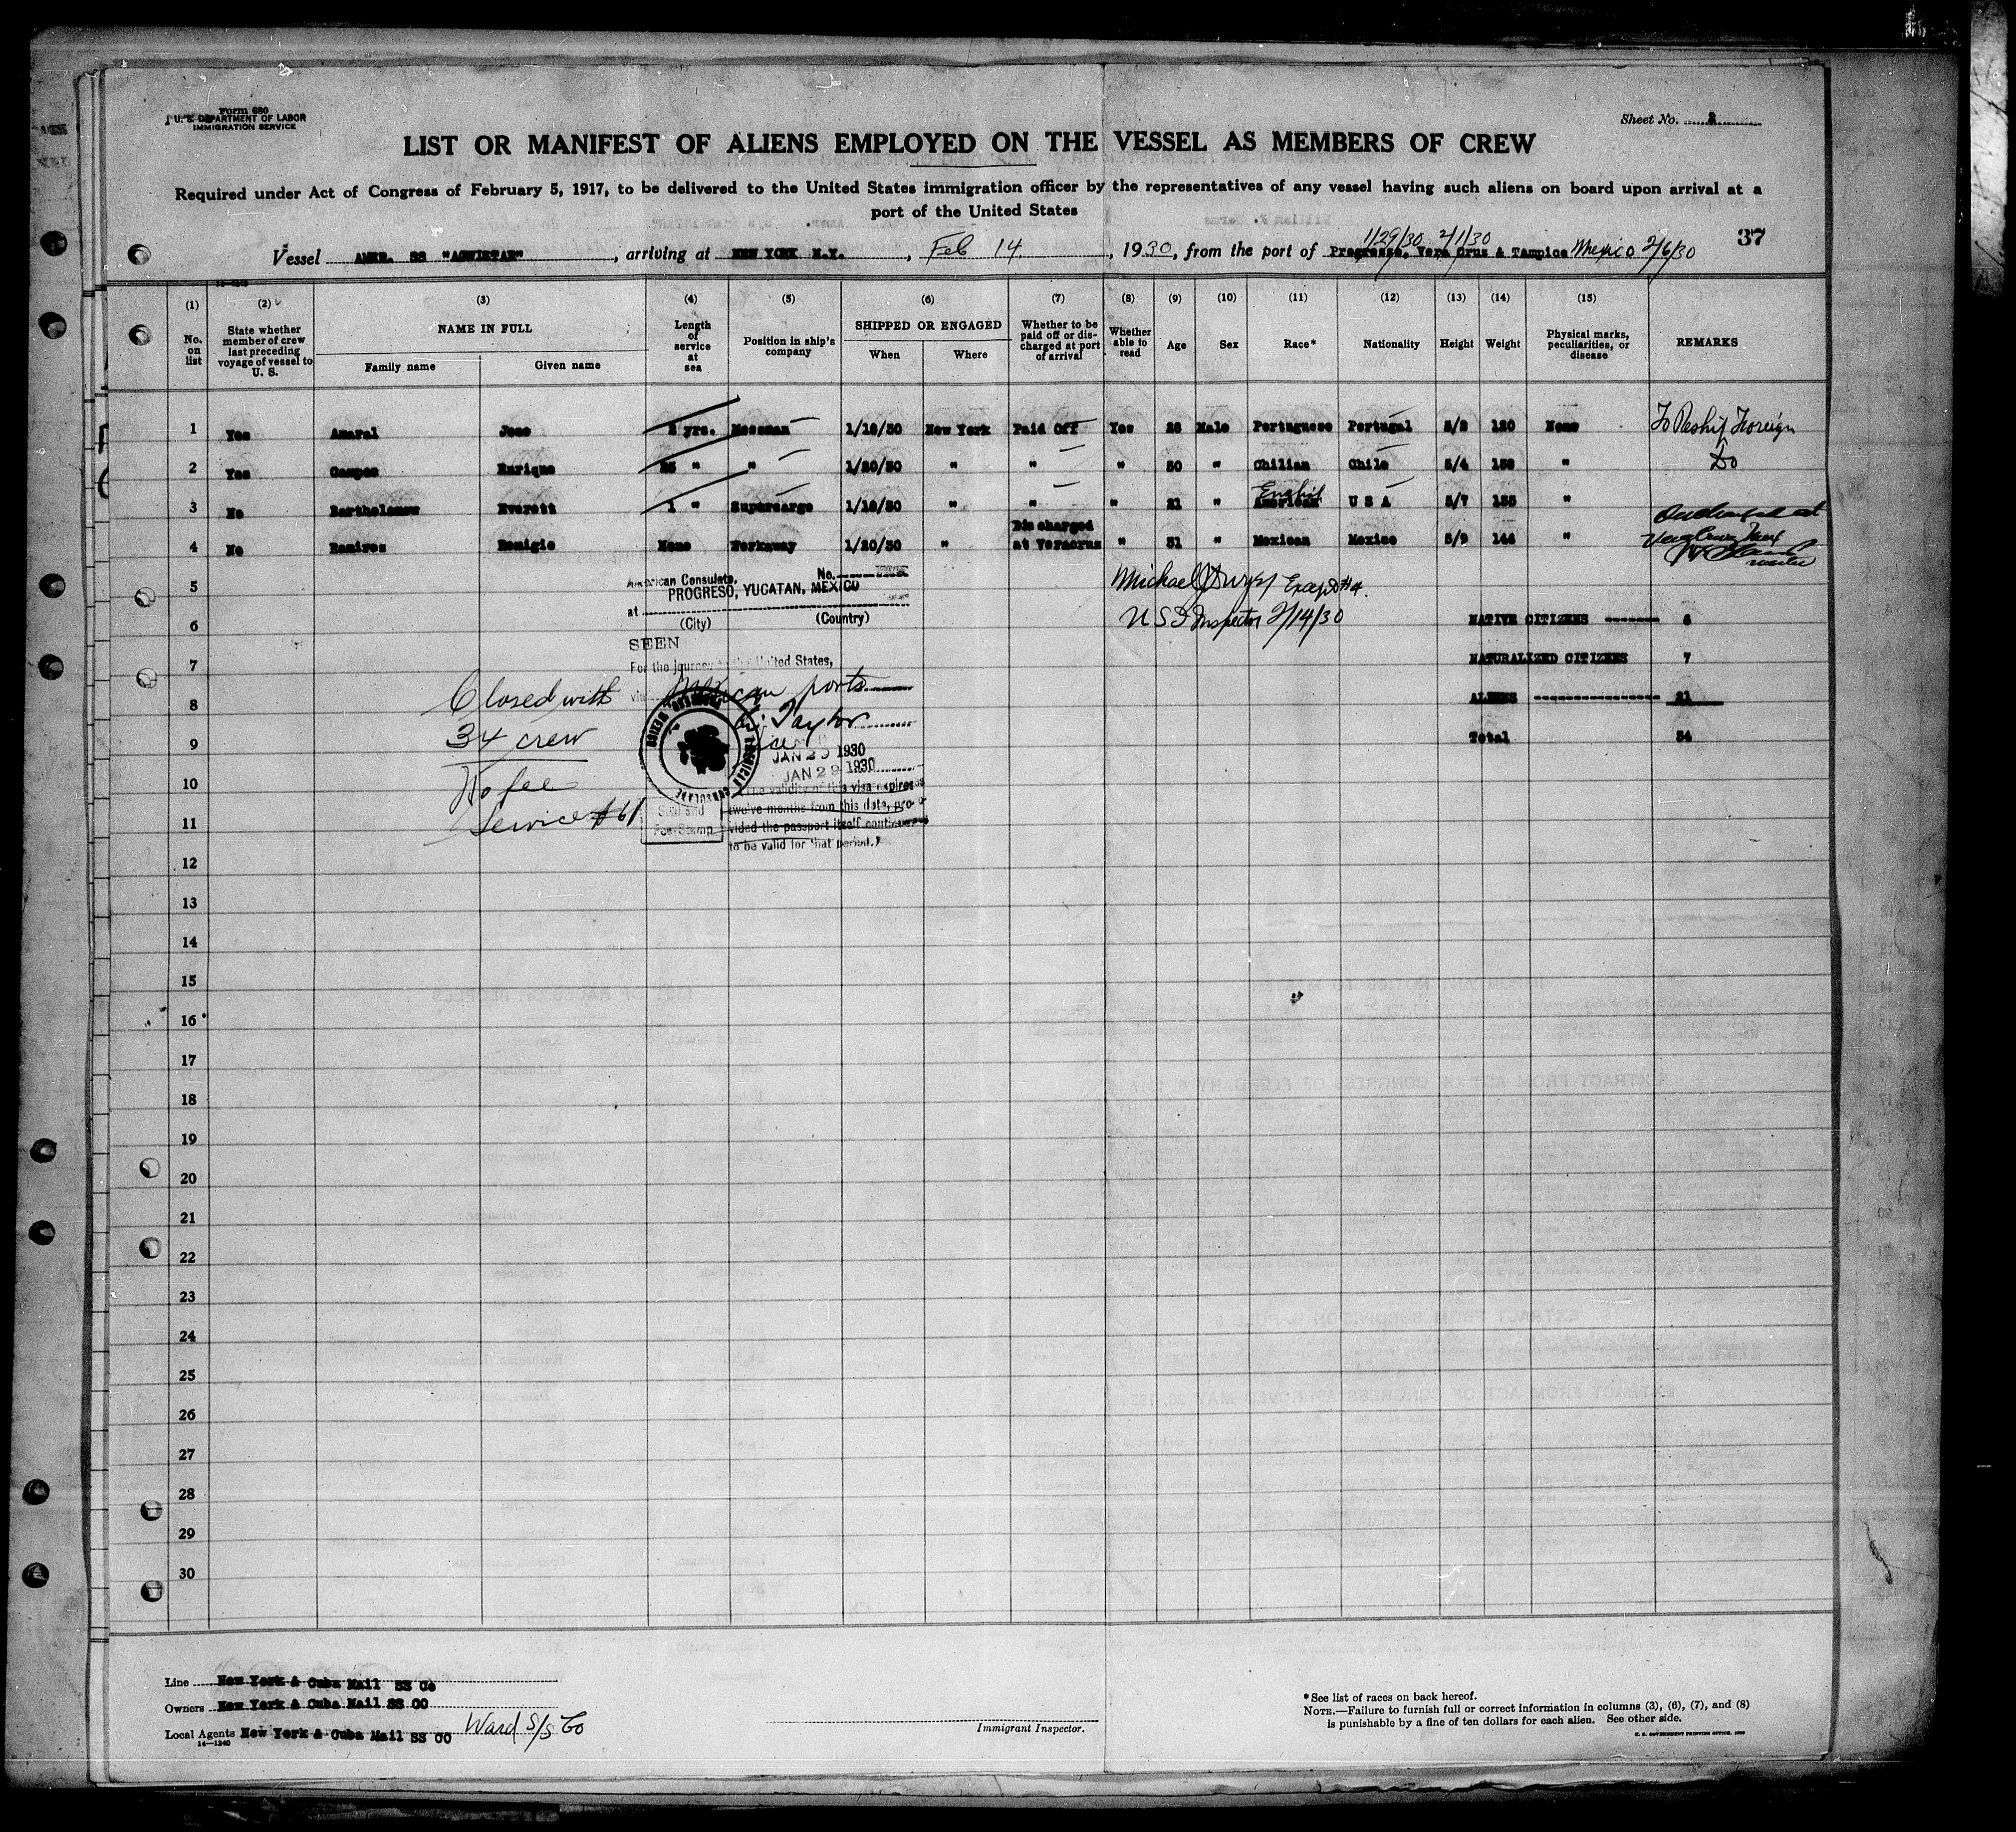 Form 680
U. S. DEPARTMENT OF LABOR
IMMIGRATION SERVICE
Sheet No. 2
LIST OR MANIFEST OF ALIENS EMPLOYED ON THE VESSEL AS MEMBERS OF CREW
Required under Act of Congress of February 5, 1917, to be delivered to the United States immigration officer by the representatives of any vessel having such aliens on board upon arrival at a
port of the United States
37
1/29/30 2/1/30
Vessel AMER. SS "AGWISTAR", arriving at NEW YORK N.Y., Feb 14, 1930, from the port of Progresso, Vera Cruz & Tampico Mexico 2/6/30
(1) (2) (3) (4) (5) (6) (7) (8) (9) (10) (11) (12) (13) (14) (15)
No. on list
State whether member of crew last preceding voyage of vessel to U. S.
NAME IN FULL
Family name Given name
Length of service at sea
Position in ship's company
SHIPPED OR ENGAGED
When Where
Whether to be paid off or discharged at port of arrival
Whether able to read
Age Sex Race* Nationality Height Weight
Physical marks, peculiarities, or disease
REMARKS
1 Yes Amaral Jose yrs. Messman 1/18/30 New York Paid Off Yes 28 Male Portuguese Portugal 5/2 120 None To Reship Foreign
2 Yes Campos Enrique 25 " " 1/20/30 " " " 50 " Chilian Chile 5/4 "Do
English
3 No Bartholomew Everett 1 " Supercargo 1/18/30 " " " 21 " American U S A 5/7 "
4 No Ramirez Remigio None Workaway 1/20/30 " Discharged at Veracruz " 31 " Mexican Mexico 5/9 144 "
5
6
7
8
9
10
11
12
13
14
15
16
17
18
19
20
21
22
23
24
25
26
27
28
29
30
American Consulate, No.
PROGRESO, YUCATAN, MEXICO
at
(City) (Country)
SEEN
For the journey to the United States,
via Mexican ports
Taylor
JAN 29 1930
JAN 29 1930
(The validity of this visa expires
twelve months from this date, pro-
vided the passport itself continues
to be valid for that period.)
Seal and
Fee Stamp
Closed with
34 crew
No fee
Service #61
Michael Except #4.
U S I Inspector 2/14/30
NATIVE CITIZENS ------- 6
NATURALIZED CITIZENS 7
ALIENS ---------------- 21
Total 34
Line New York & Cuba Mail SS Co
Owners New York & Cuba Mail SS CO
Local Agents New York & Cuba Mail SS CO Ward S/S Co
14—1240
Immigrant Inspector.
*See list of races on back hereof.
NOTE.—Failure to furnish full or correct information in columns (3), (6), (7), and (8)
is punishable by a fine of ten dollars for each alien. See other side.
U. S. GOVERNMENT PRINTING OFFICE